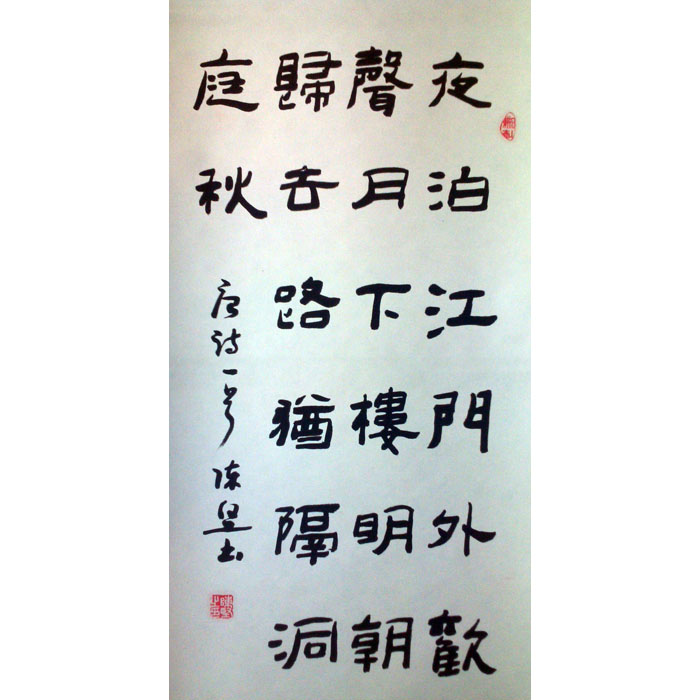 夜泊江門外歡
聲月下樓明朝
歸去路猶隔洞
庭秋
唐詩一首 陳昱書